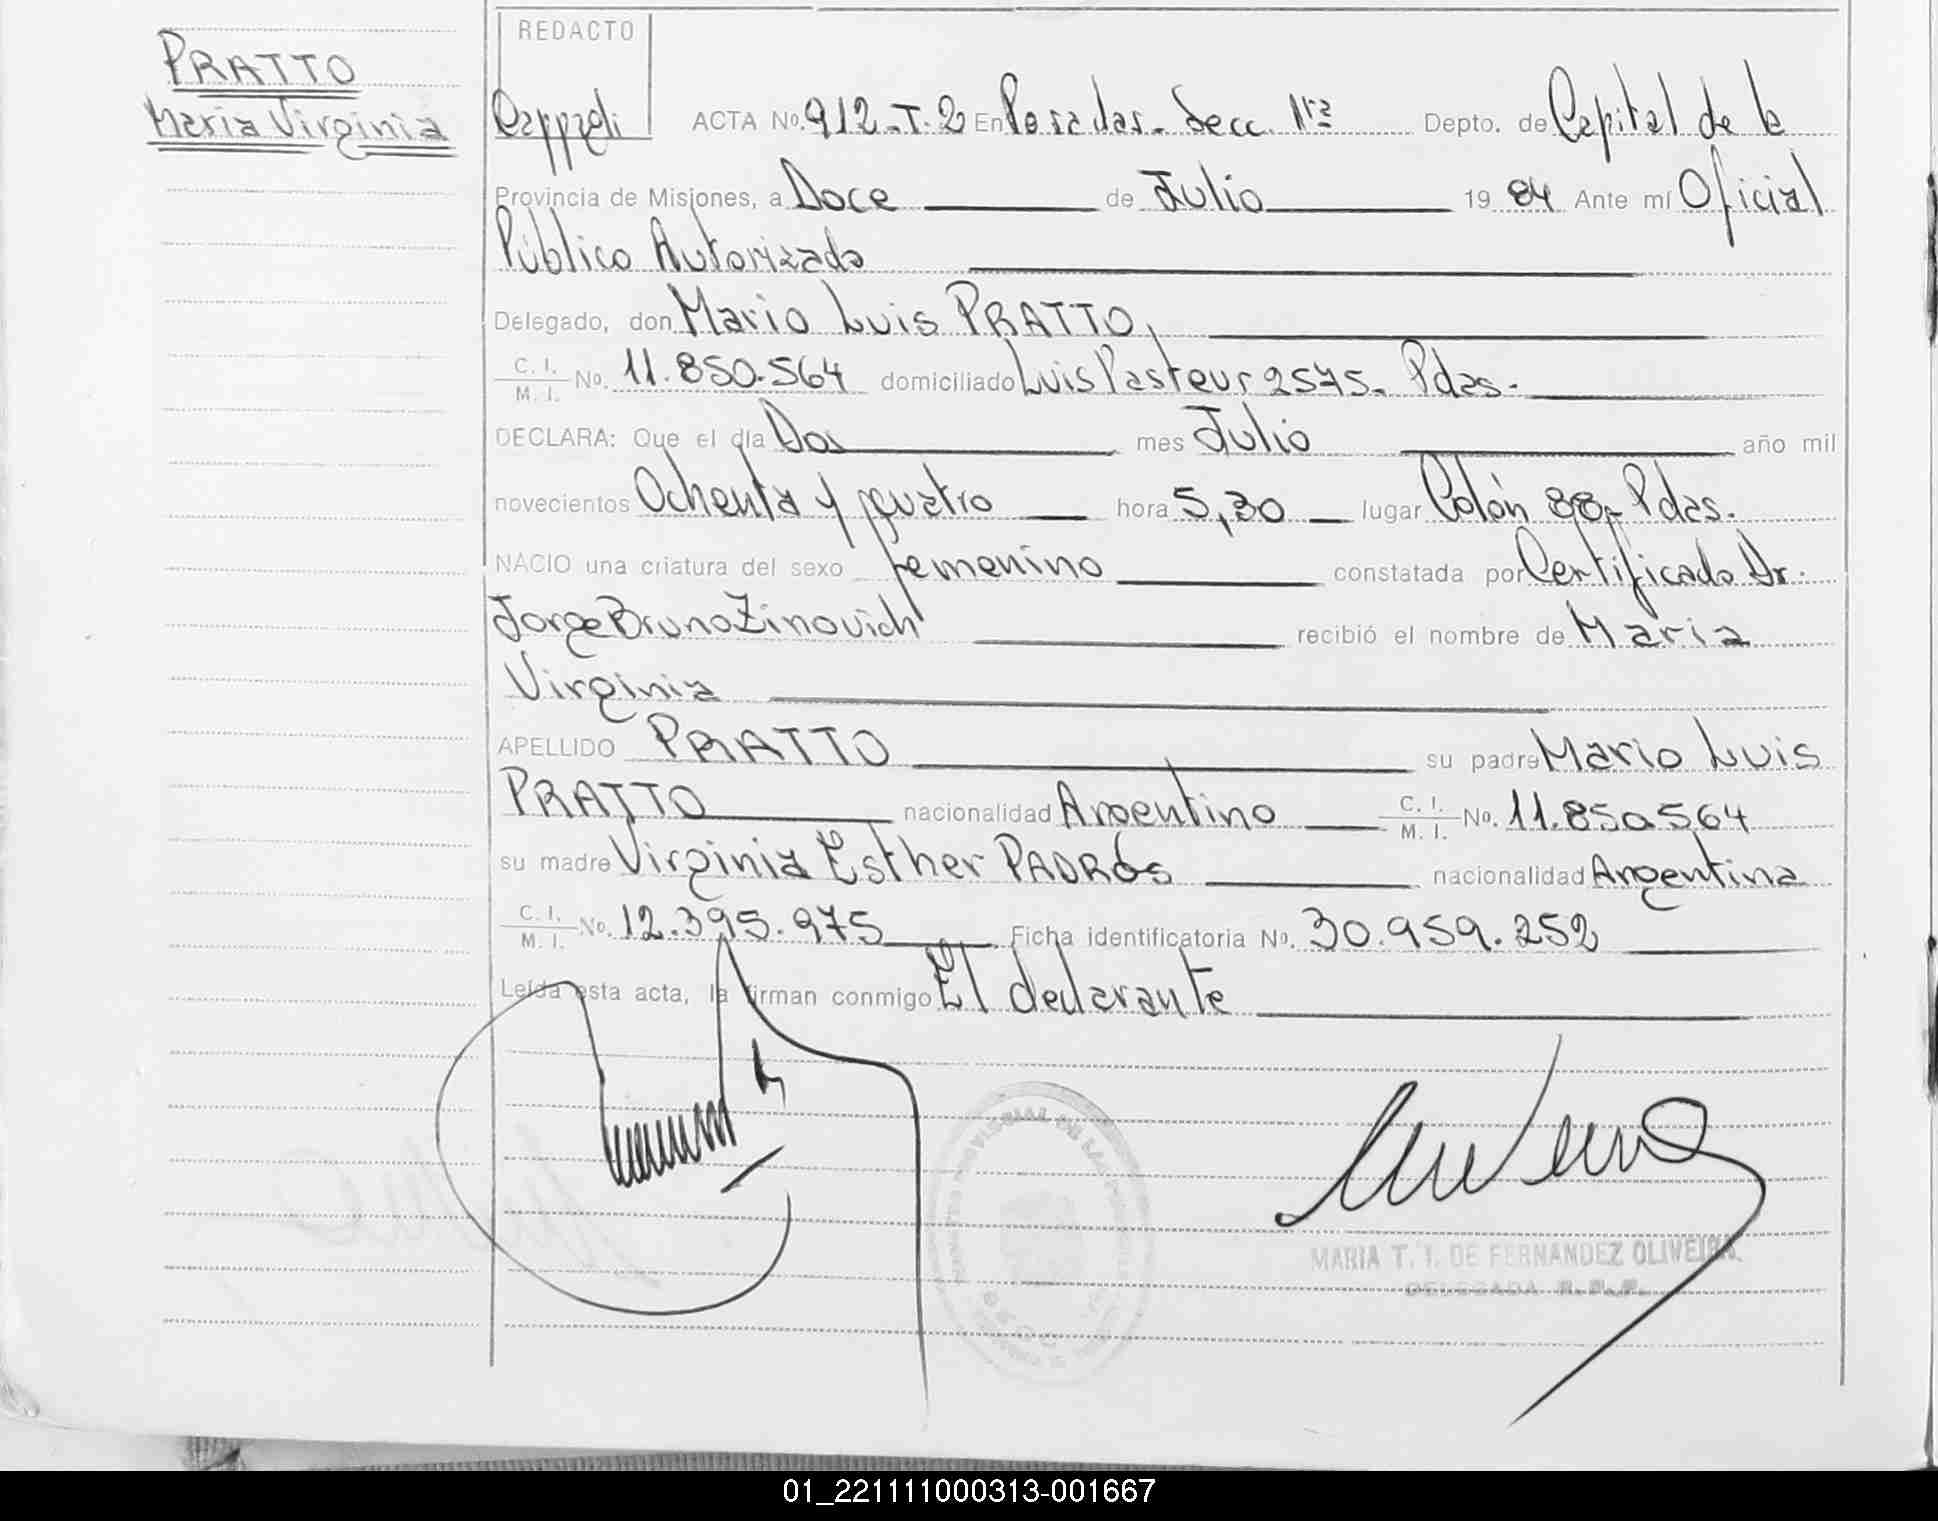 PRATTO
Maria Virginia
REDACTO
ACTA No. 912-T.2 En Posadas. Secc. 1ra Depto. de Capital de la
Provincia de Misiones, a Doce de Julio 19 84 Ante mí Oficial
Público Autorizado
Delegado, don Mario Luis PRATTO,
C. I.
M. I. No. 11.850.564 domiciliado Luis Pasteur 2575. Pdas.
DECLARA: Que el día Dos mes Julio año mil
novecientos Ochenta y cuatro hora 5,30 lugar Colón 88, Pdas.
NACIO una criatura del sexo femenino constatada por Certificado Dr.
Jorge Bruno Zinovich recibió el nombre de Maria
Virginia
APELLIDO PRATTO su padre Mario Luis
PRATTO nacionalidad Argentino C. I.
M. I. No. 11.850.564
su madre Virginia Esther PADRós nacionalidad Argentina
C. I.
M. I. No. 12.395.975 Ficha identificatoria No. 30.959.252
Leída esta acta, la firman conmigo El declarante
MARIA T. I. DE FERNANDEZ OLIVEIRA
DELEGADA R.P.P.
01_221111000313-001667